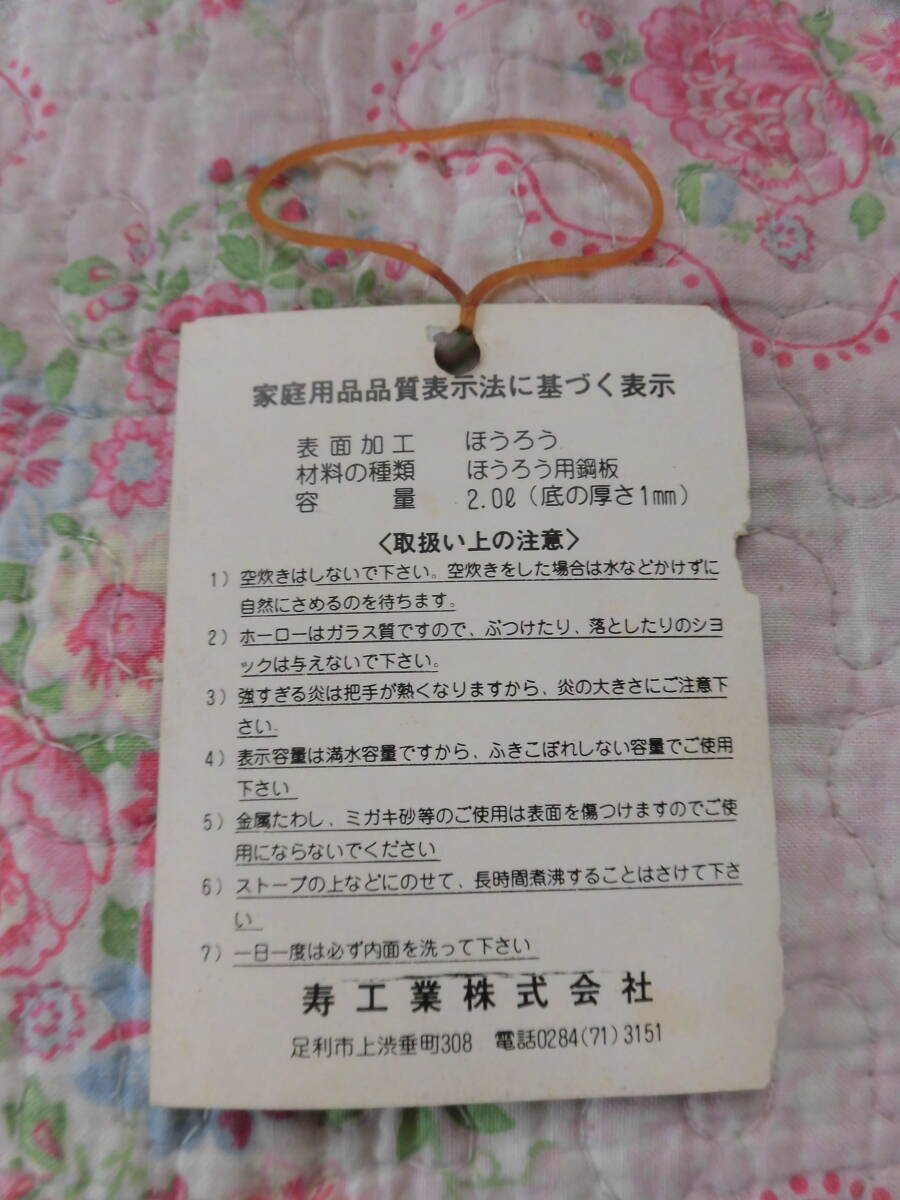 家庭用品品質表示法に基づく表示
表面加工 ほうろう
材料の種類 ほうろう用鋼板
容量 2.0ℓ(底の厚さ1mm)
〈取扱い上の注意〉
1) 空炊きはしないで下さい。空炊きをした場合は水などかけずに
自然にさめるのを待ちます。
2) ホーローはガラス質ですので、ぶつけたり、落としたりのショ
ックは与えないで下さい。
3) 強すぎる炎は把手が熱くなりますから、炎の大きさにご注意下
さい.
4) 表示容量は満水容量ですから、ふきこぼれしない容量でご使用
下さい
5) 金属たわし、ミガキ砂等のご使用は表面を傷つけますのでご使
用にならないでください
6) ストーブの上などにのせて、長時間煮沸することはさけて下さ
い
7) 一日一度は必ず内面を洗って下さい
寿工業株式会社
足利市上渋垂町308 電話0284(71)3151